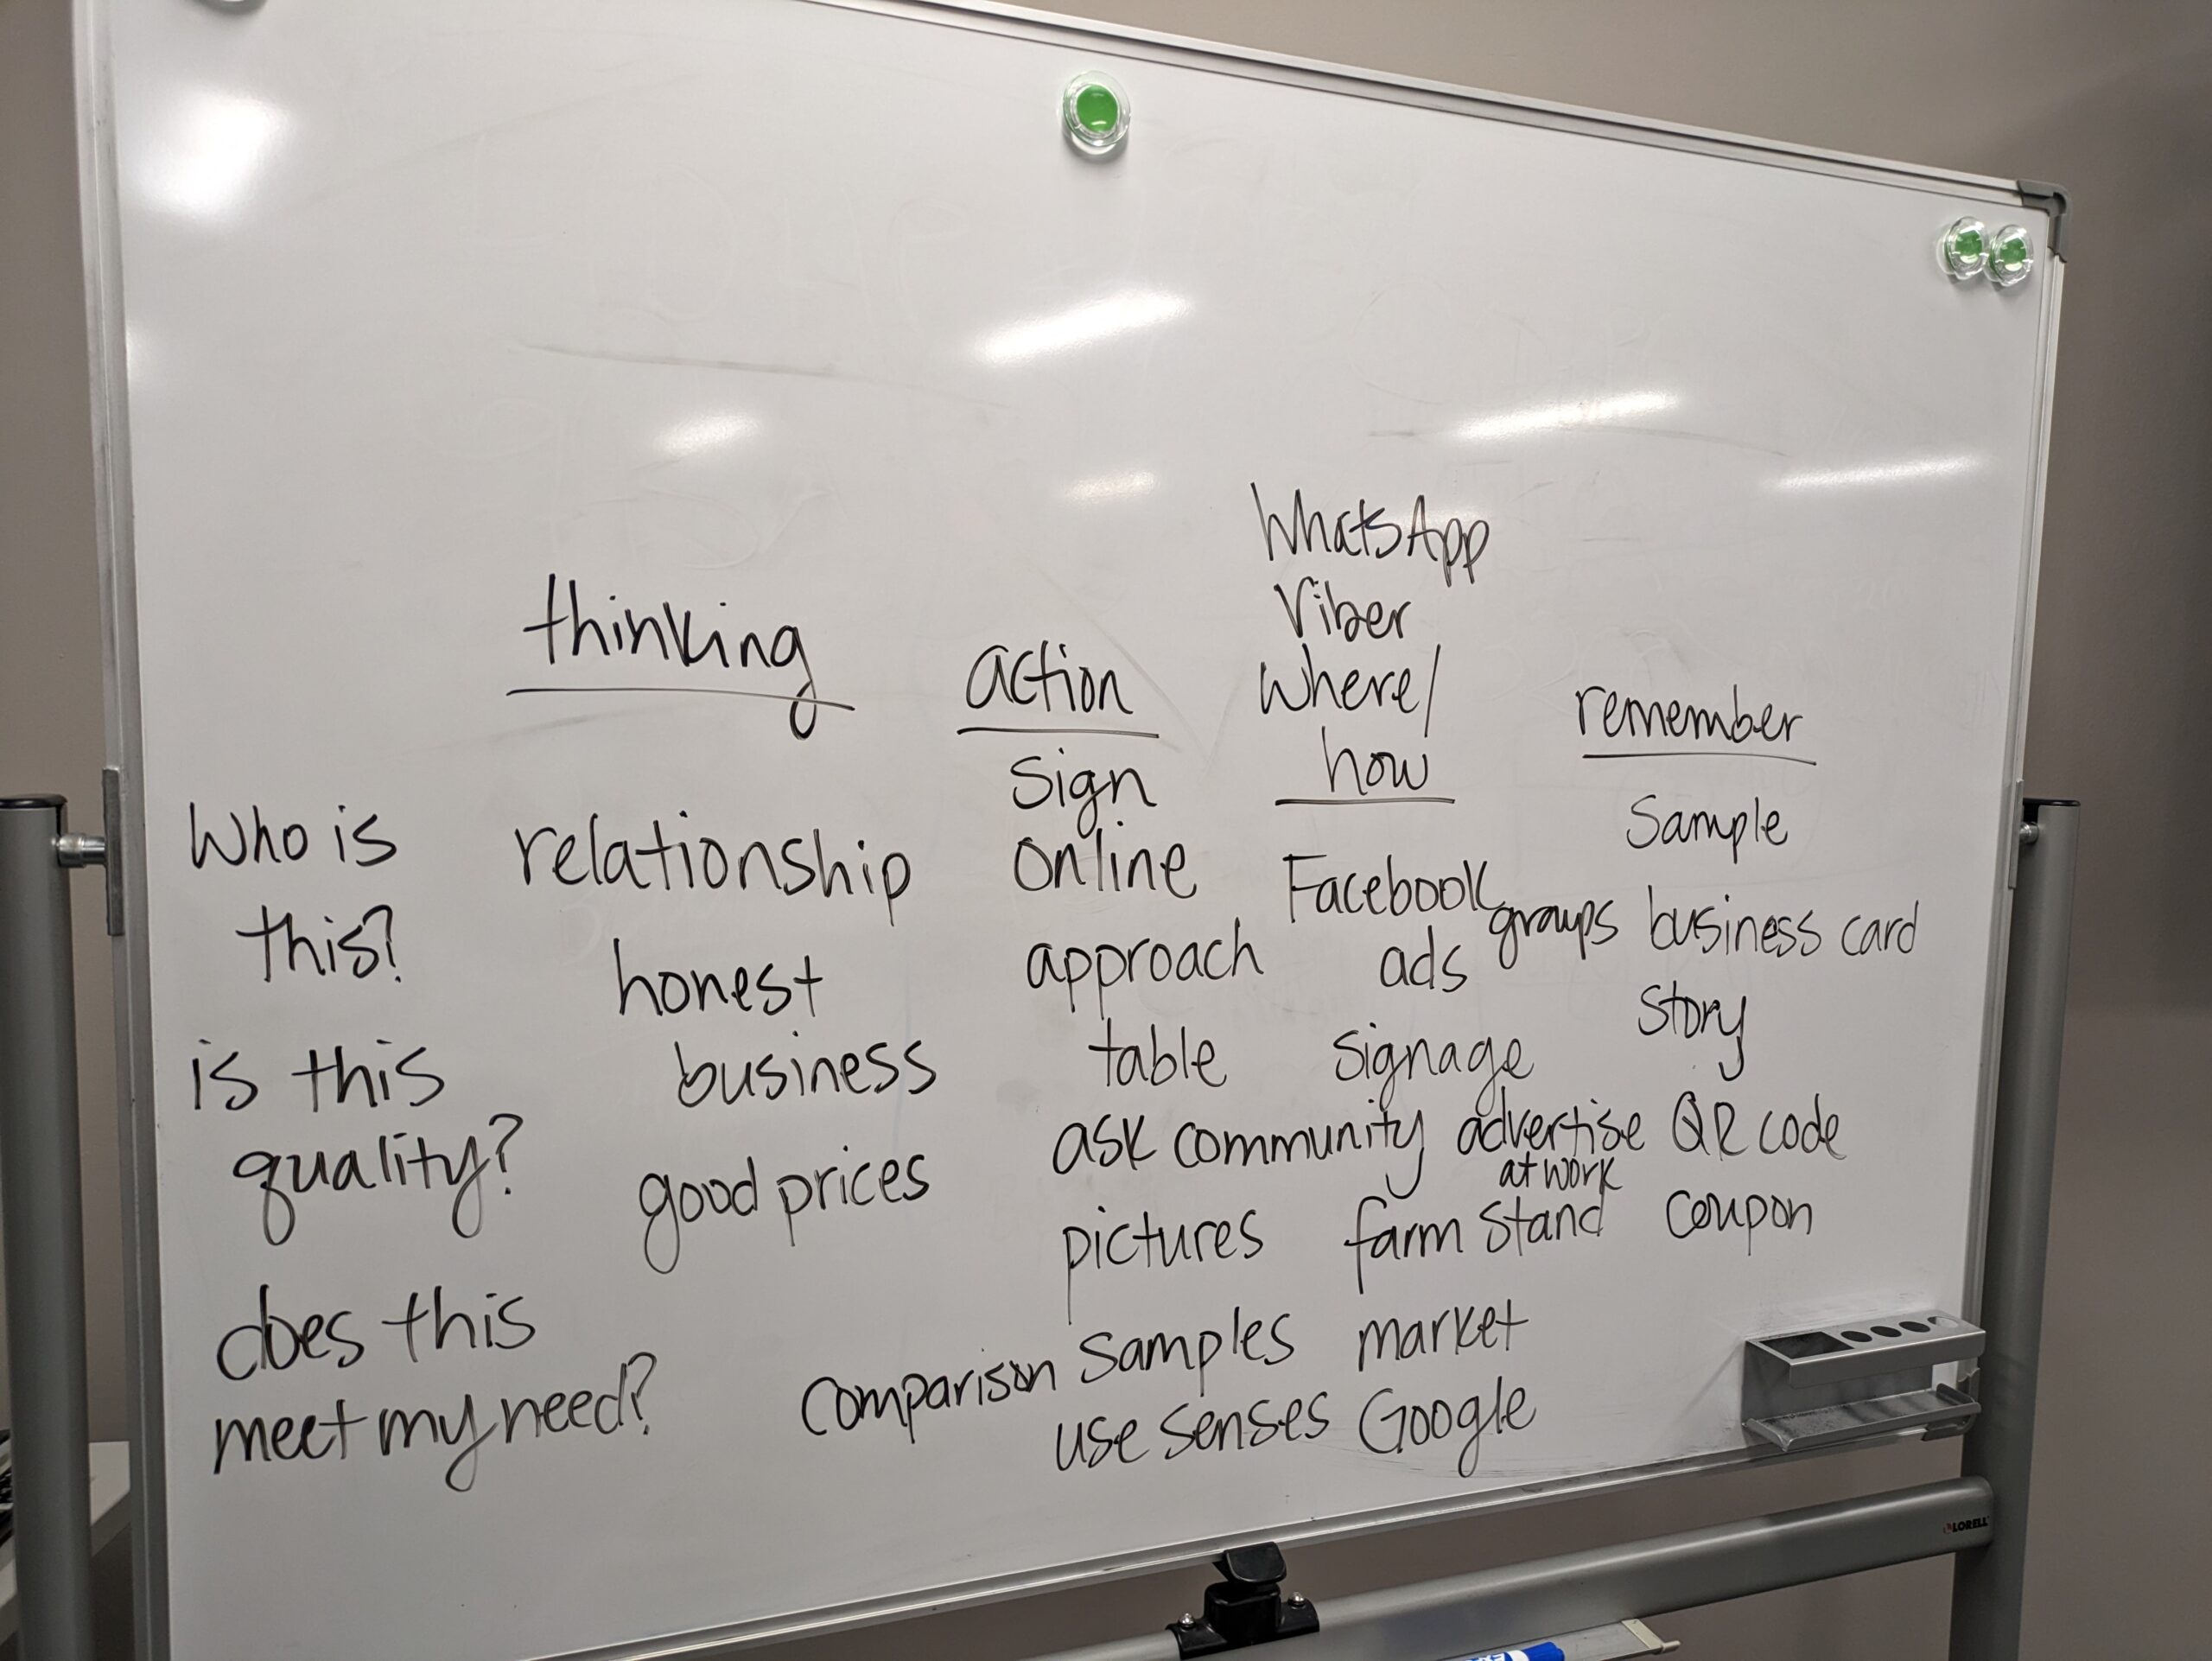 WhatsApp
Viber
thinking action where/ remember
how
sign Sample
Who is relationship online Facebook groups business card
this? honest approach ads story
is this business table signage
quality? good prices ask community advertise QR code
at work
pictures farm stand coupon
does this samples market
meet my need? comparison use senses Google
LORELL